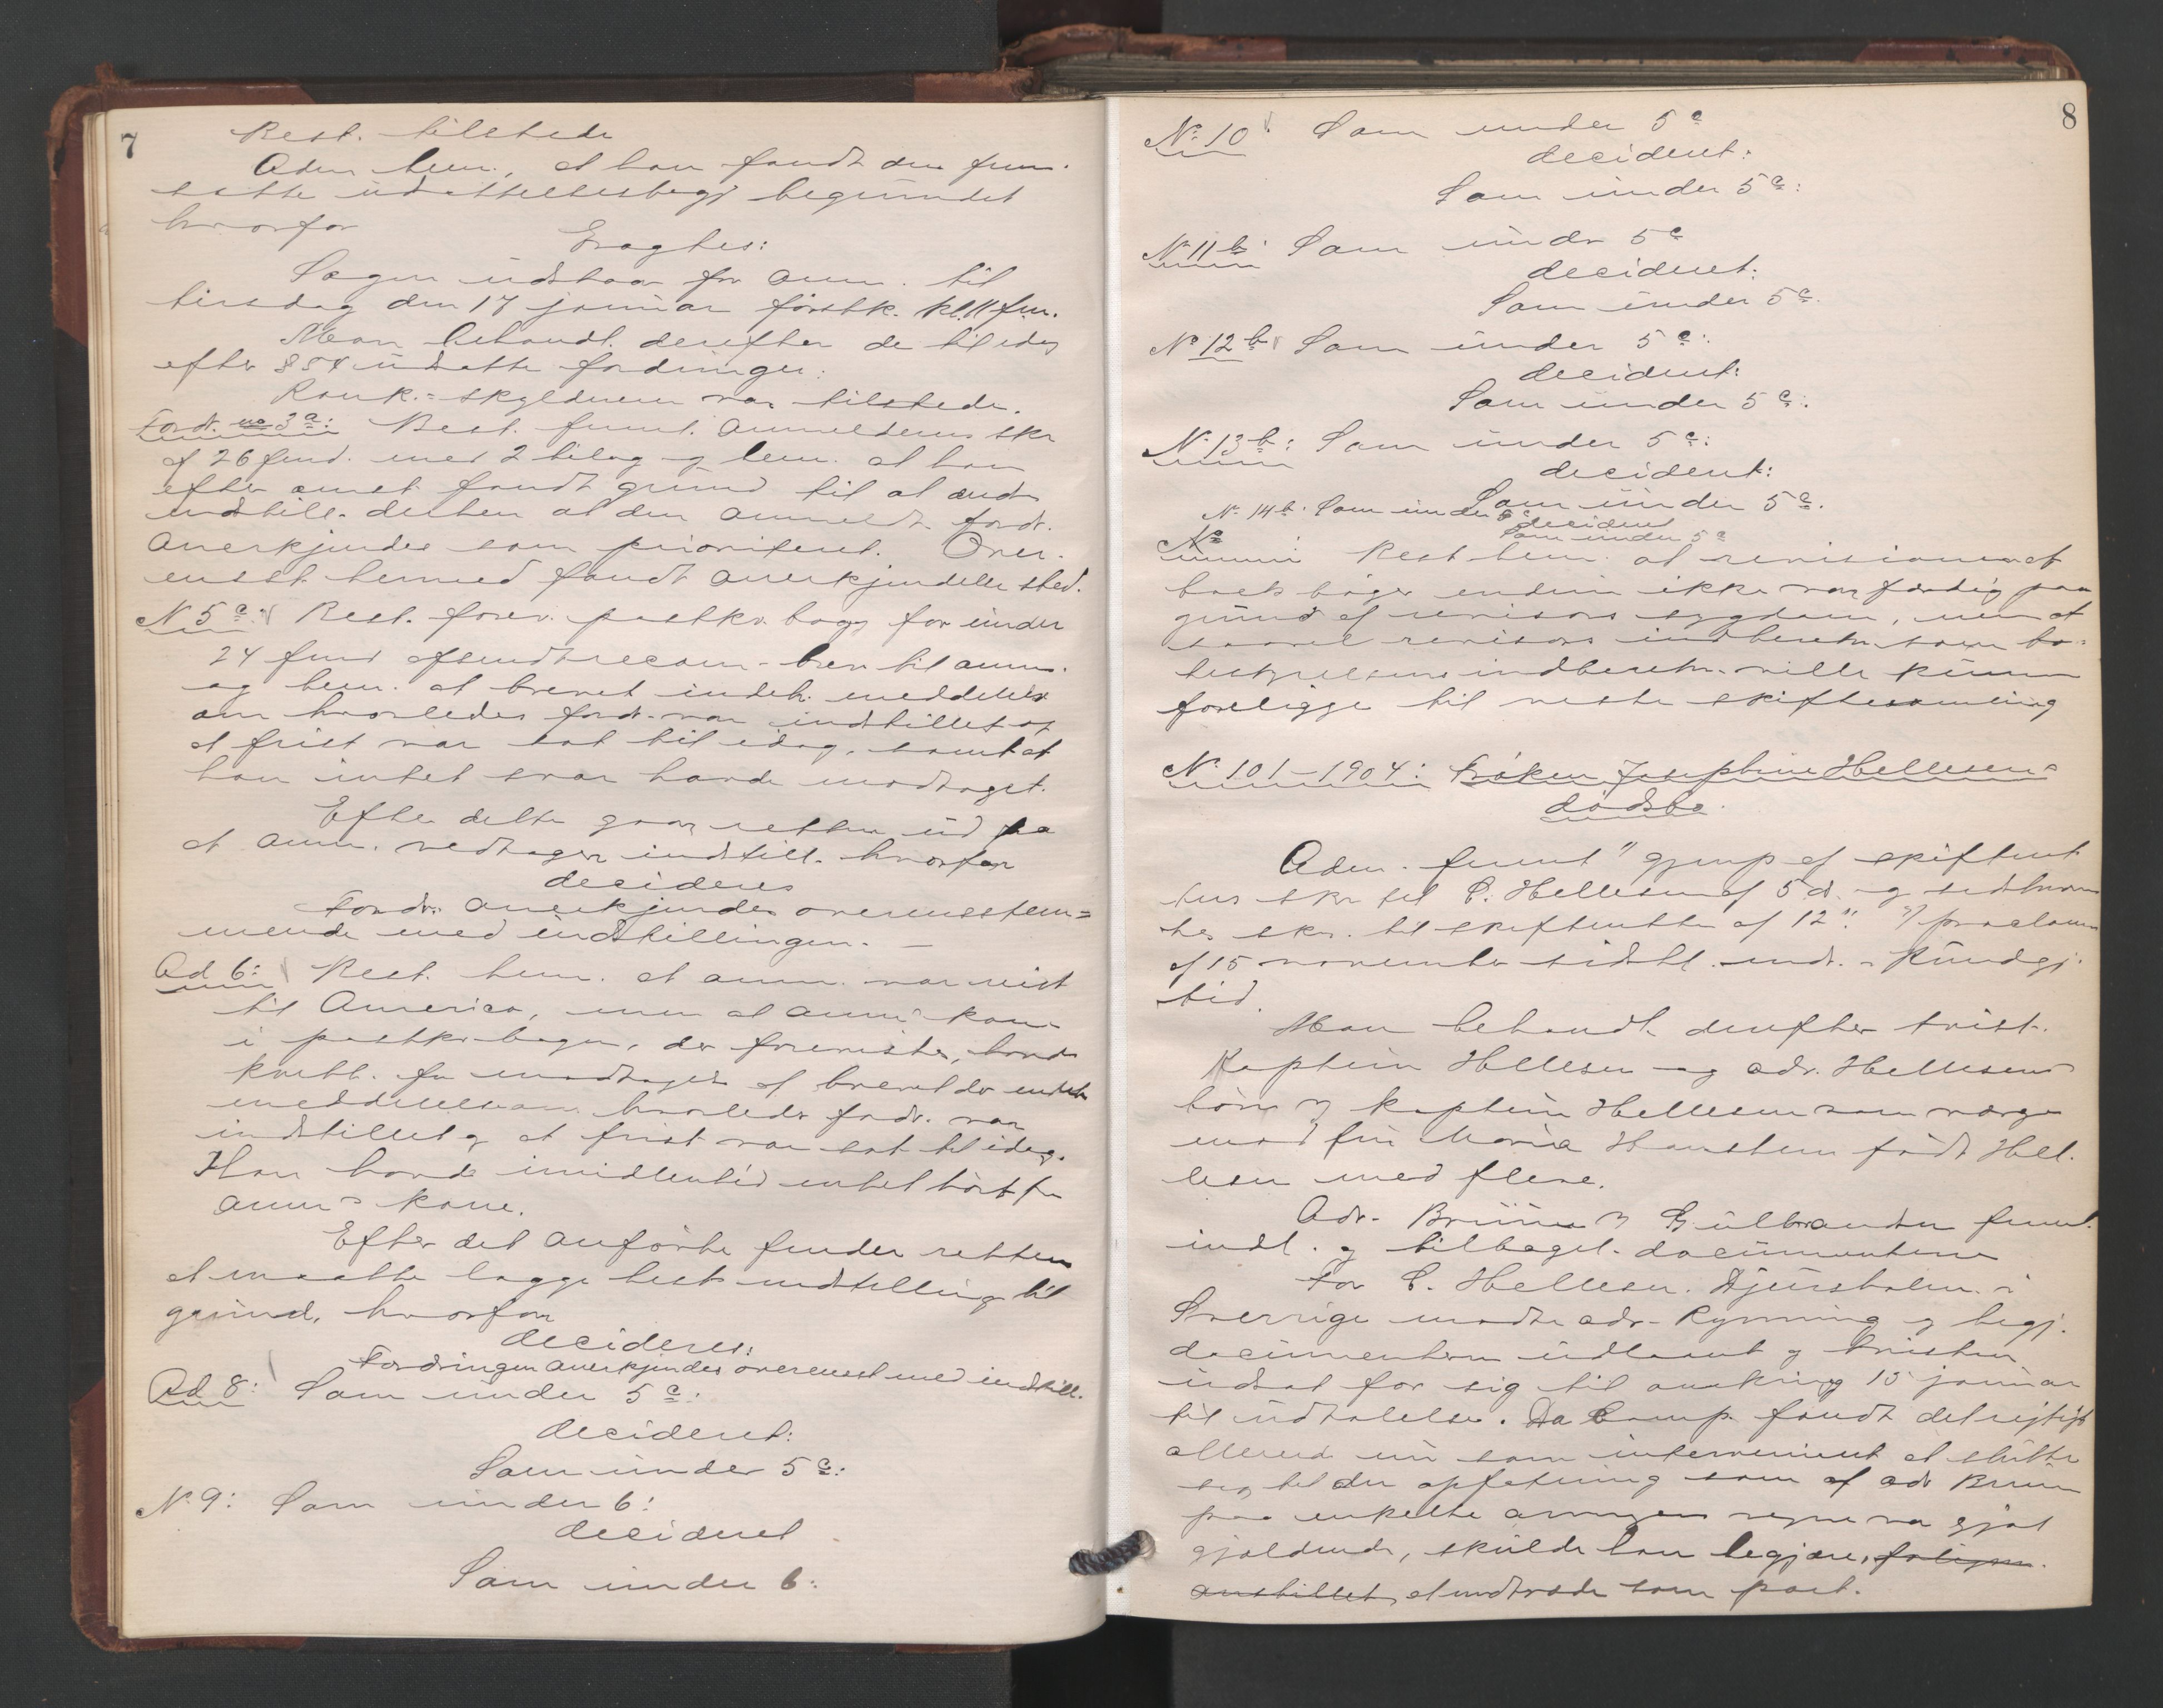 7
Best. tilstede
Adm. bem., at han fandt den frem-
satte udsættelsesbegj begrundet
hvorfor
Eragtes:
Sagen udstaar for anm. til
tirsdag den 17 januar förstk. kl. 11 fm.
Man behandl. derefter de til idag
efter § 54 udsatte fordringer:
Konk.=skyldneren var tilstede.
Fordr. no 3a: Best. freml. anmelderens skr
af 26 f.md. med 2 bilag og bem. at han
efter omst. fandt grund til at ændre
indstill. derhen at den anmeldte fordr.
anerkjendes som prioriteret. Over-
ensst hermed fandt anerkjendelse sted.
No 5a: Best. forev. postkv. bog for under
24 f.md afsendt recom. brev til anm.
og bem. at brevet indeh. meddelelse
om hvorledes fordr. var indstillet og
at frist var sat til idag, samt at
han intet svar havde modtaget.
Efter dette gaar retten ud fra
at anm. vedtager indstill. hvorfor
decideres
Fordr. anerkjendes overensstem=
mende med indstillingen. —
Ad 6: Best. bem. at anm. var reist
til America, men at anm's kone
i postkv. bogen, der forevistes, havde
kvitt. for modtagelse af brevet der indeh
meddelelse om hvorledes fordr. var
indstillet og at frist var sat til idag.
Han havde imidlertid intet hört fra
anm's kone.
Efter det anförte finder retten
at maatte lægge best. indstilling til
grund, hvorfor
decideres:
Fordringen anerkjendes overensst med indstill.
Ad 8: Som under 5a:
decideret:
Som under 5a:
No 9: Som under 6:
decideret
Som under 6:
8
No 10: Som under 5a
decideret:
Som under 5a:
No 11b: Som under 5a
decideret:
Som under 5a.
No 12b: Som under 5a:
decideret:
Som under 5a:
No 13b: Som under 5a:
decideret:
Som under 5a.
No 14b: Som under 5a
decideret
Som under 5a
No
Best bem. at revisionen af
boets böger endnu ikke var færdig paa
grund af revisors sygdom, men at
saavel revisors indberetn. som bo-
bestyrelsens indberetn. ville kunne
foreligge til næste skiftesamling
No 101–1904: Fröken Josephine Hellesens
dödsbo.
Adm. freml 1) gjenp af skifterett
ens skr til C. Hellesen af 5 ds og sidstnævn
tes skr. til skifteretten af 12 " 2) proclama
af 15 november sidstl. indr. i Kundgj.
tid.
Man behandl. derefter tvist.
Kaptein Hellesen og adv. Hellesens
börn v/ kaptein Hellesen som værge
mod fru Maria Hansteen födt Hel-
lesen med flere.
Adv. Bruun v/ Gulbrandsen freml.
indl. og tilbagel. documenterne
For C. Hellesen, Djursholm i
Sverrige mödte adv. Rynning og begj.
documenterne udlaant og tvisten
udsat for sig til omkring 15 januar
til udtalelse. Da Comp. fandt det rigtigt
allerede nu som intervenient at slutte
sig til den opfatning som af adv Bruun
paa enkelte arvingers vegne var gjort
gjældende, skulde han begjære,
at indtræde som part.